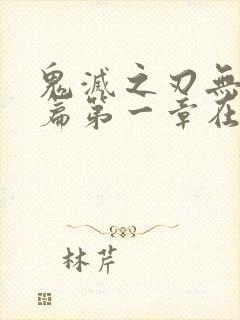 鬼滅之刃無
篇第一章在
林芹